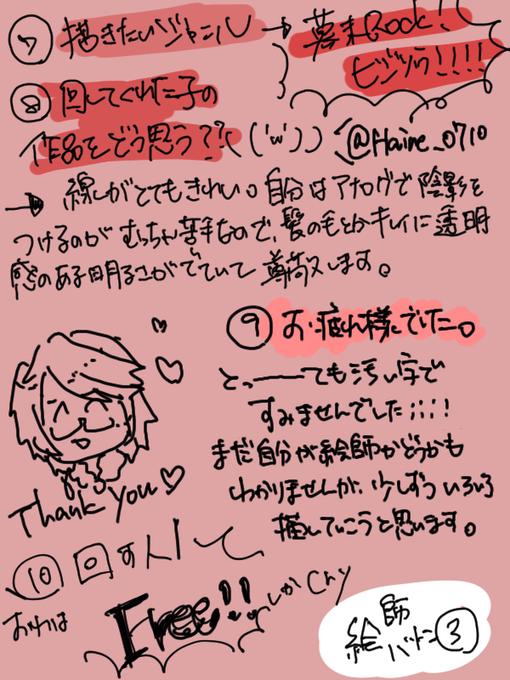 ⑦ 描きたいジャンル → 幕末Rock!
ヒジゾウ!!!!
⑧ 回してくれた子の
作品をどう思う??
(´ω`)) @Haine_0710
→ 線がとてもきれい。自分はアナログで陰影を
つけるのがむっちゃ苦手なので、髪の毛とかキレイに透明
感のある明るさがでていて尊敬します。
⑨ お疲れ様でした。
とっーーても汚い字で
すみませんでした;;;!
まだ自分が絵師かどうかも
わかりませんが、少しずついろいろ
描いていこうと思います。
Thank you
⑩ 回す人!って
おわは
Free!!
しか
絵師
バトン③